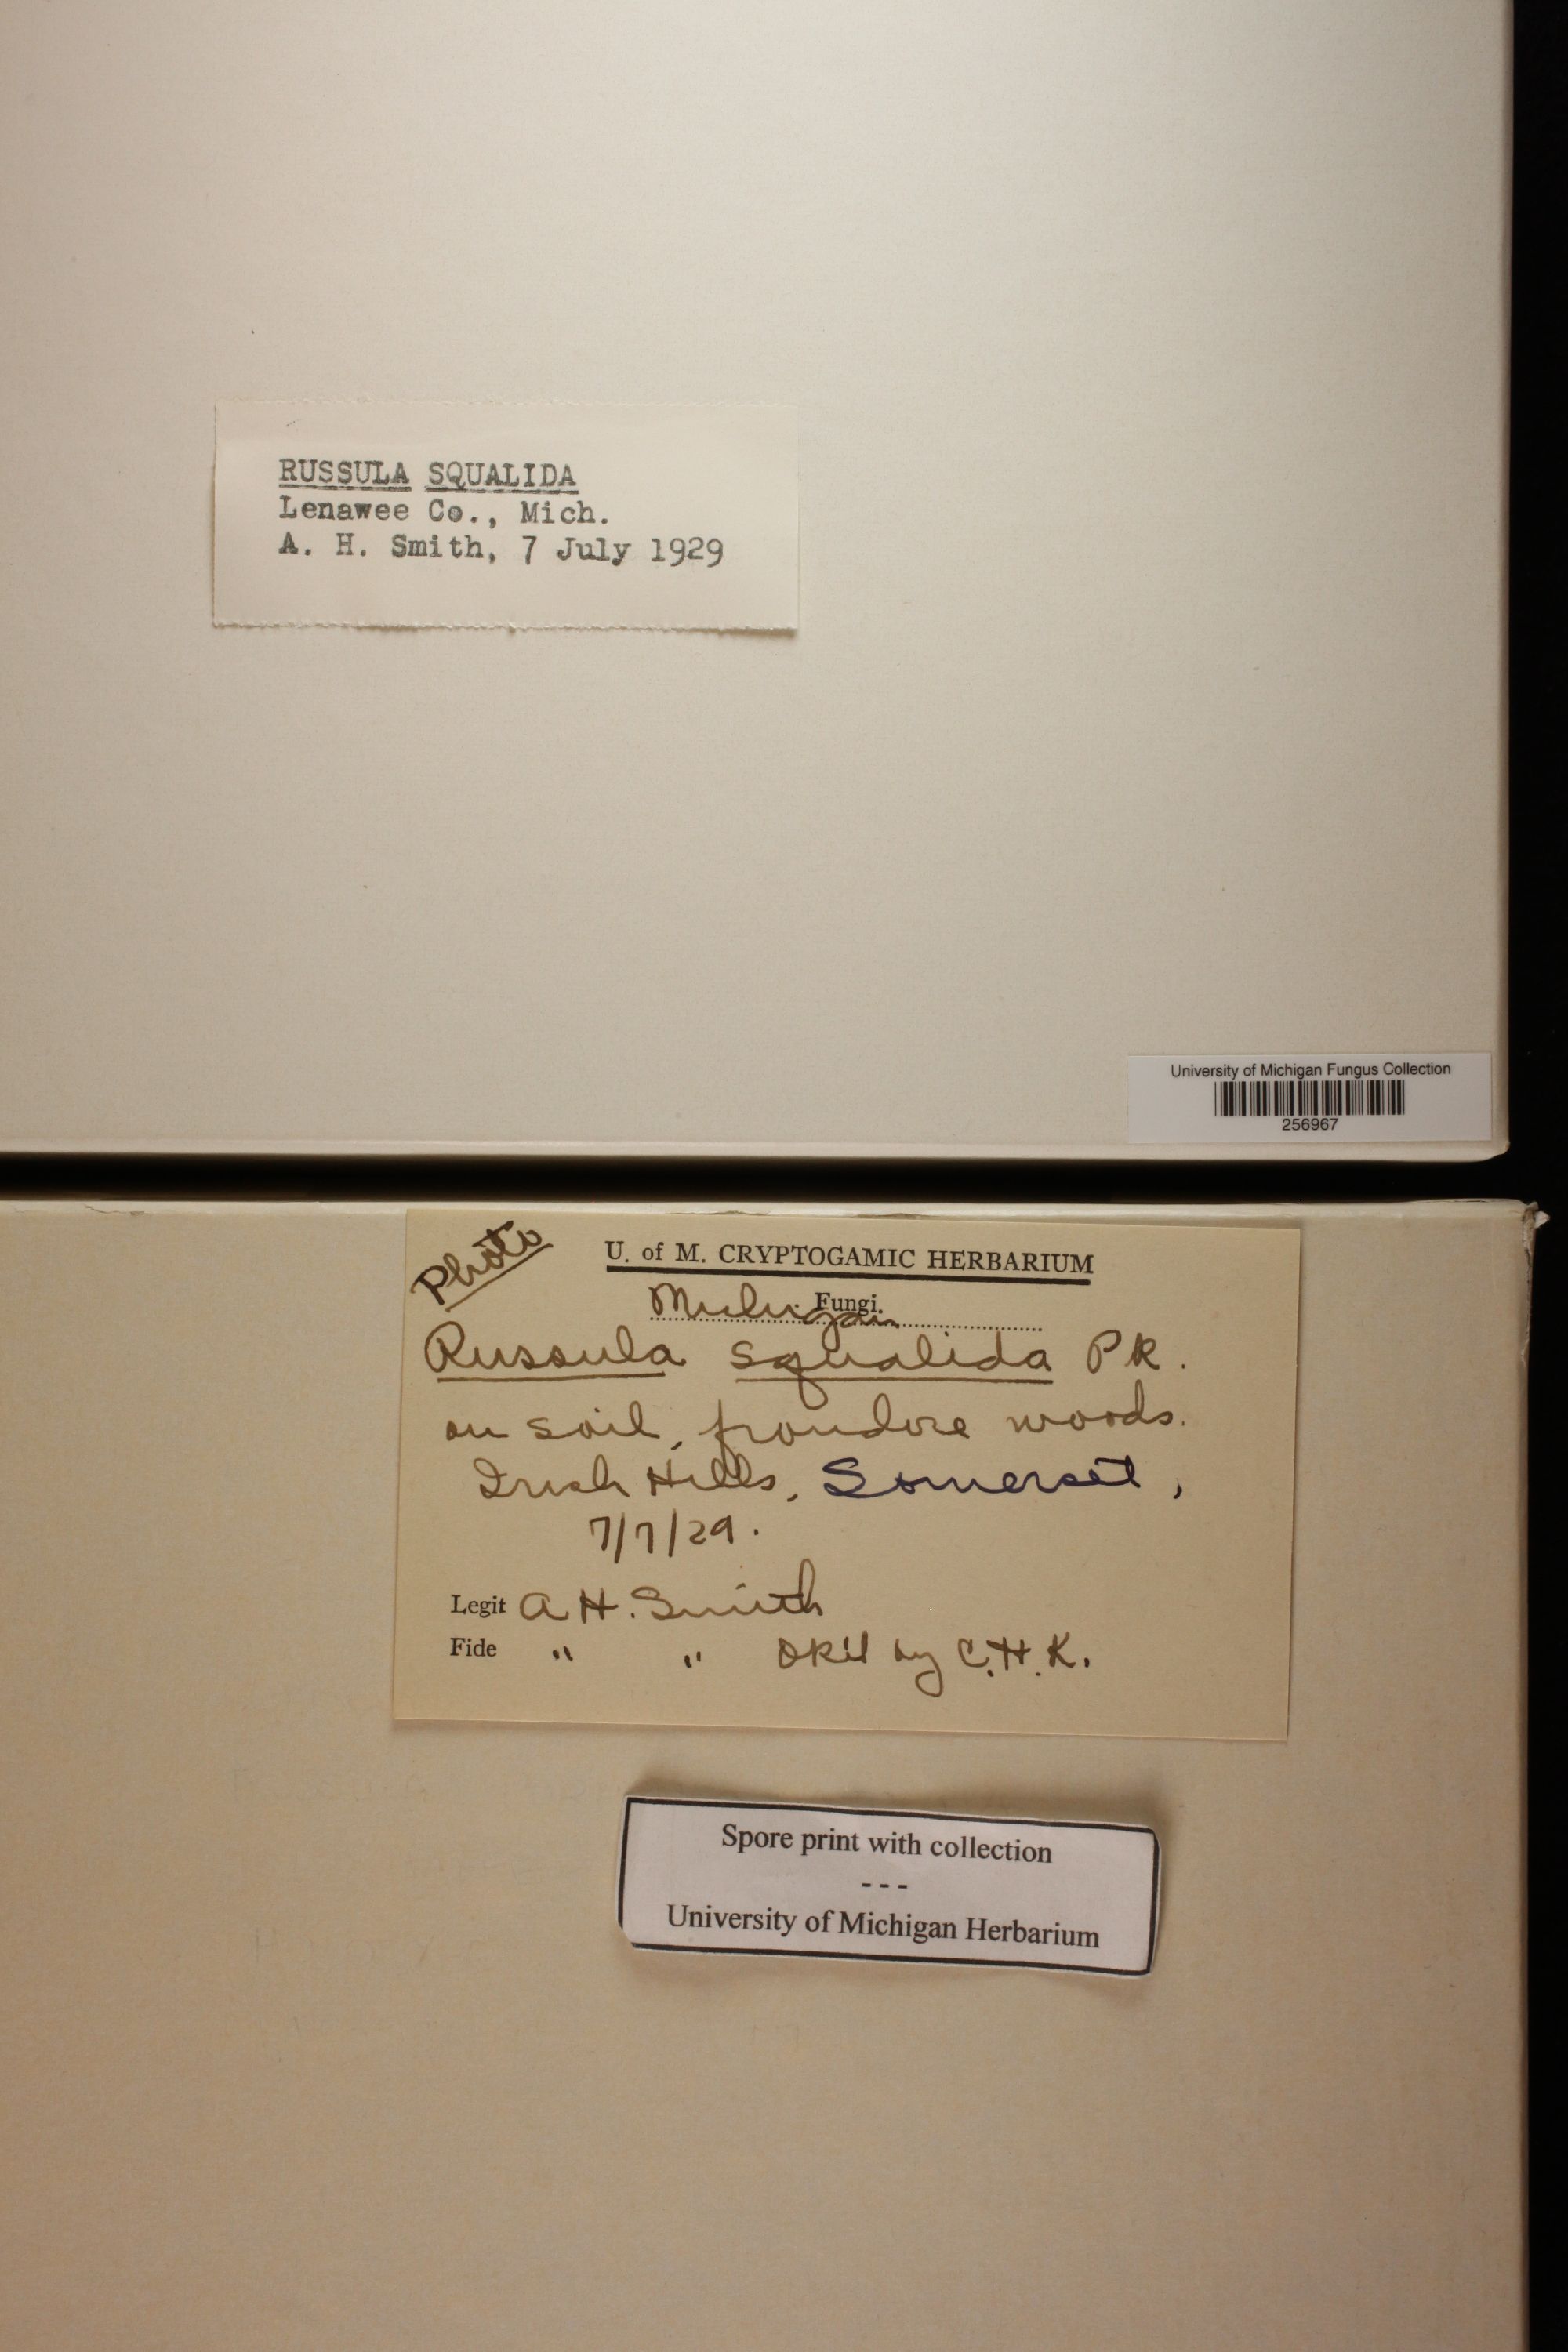 RUSSULA SQUALIDA
Lenawee Co., Mich.
A. H. Smith, 7 July 1929
University of Michigan Fungus Collection
256967
Photo
U. of M. CRYPTOGAMIC HERBARIUM
Michigan Fungi.
Russula squalida Pk.
on soil, frondose woods.
Irish Hills, Somerset,
7/7/29.
Legit A H. Smith
Fide " " OK'd by C.H.K.
Spore print with collection
---
University of Michigan Herbarium